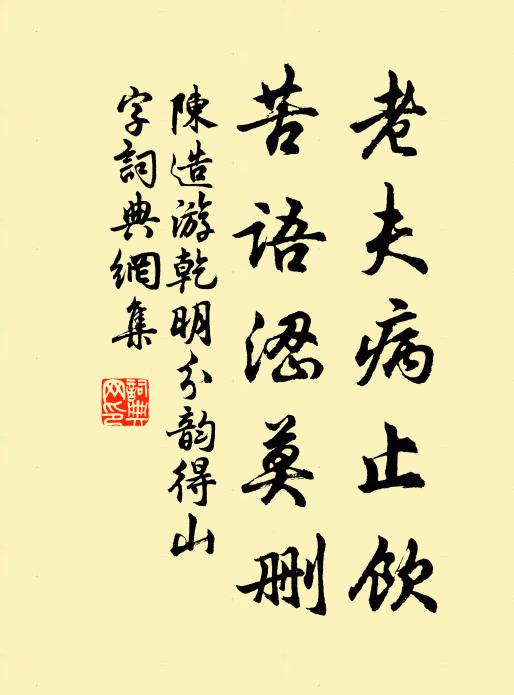 老夫病止飲
苦語澀莫刪
陳造游乾明分韵得山
字詞典網集
詞典網印